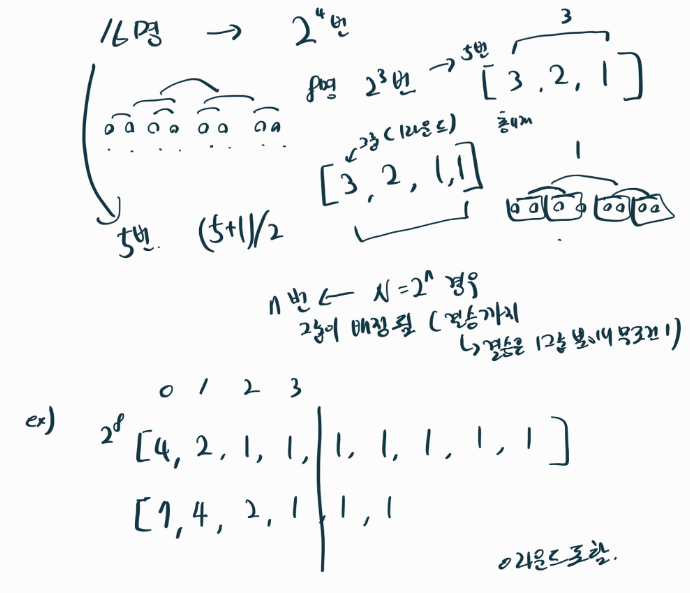 16명 → 2^4번
8명 2^3번 → 5번 [ 3 , 2 , 1 ]
3
총4개
그룹(1라운드)
[ 3 , 2 , 1 , 1 ]
1
5번. (5+1)/2
n번 ← N = 2^n 경우
그룹이 배정될 (결승까지
↳ 결승은 1그룹 무조건 1)
0 1 2 3
ex) 2^8 [ 4 , 2 , 1 , 1 , 1 , 1 , 1 , 1 , 1 ]
[ 7 , 4 , 2 , 1 , 1 , 1
0라운드 포함.